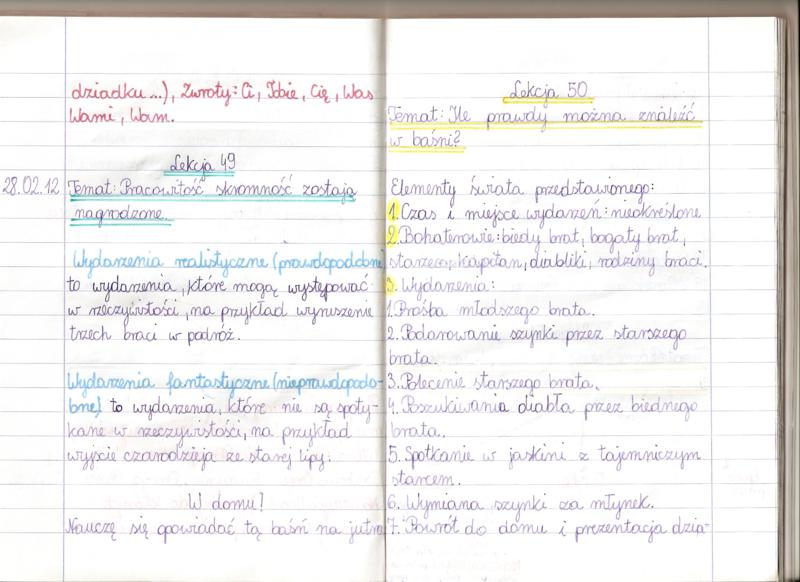 dziadku...), Zwroty: Ci, Tobie, Cię, Was
Wami, Wam.
Lekcja 49
28.02.12
Temat: Pracowitość skromność zostają
nagrodzone.
Wydarzenia realistyczne (prawdopodobne)
to wydarzenia, które mogą występować
w rzeczywistości, na przykład wyruszenie
trzech braci w podróż.
Wydarzenia fantastyczne (nieprawdopodo-
bne) to wydarzenia, które nie są spoty-
kane w rzeczywistości, na przykład
wyjście czarodzieja ze starej lipy.
W domu!
Nauczę się opowiadać tą baśń na jutro
Lekcja 50
Temat: Ile prawdy można znaleźć
w baśni?
Elementy świata przedstawionego:
1. Czas i miejsce wydarzeń: nieokreślone
2. Bohaterowie: biedy brat, bogaty brat,
starzec, kapitan, diabliki, rodziny braci.
3. Wydarzenia:
1. Prośba młodszego brata.
2. Podarowanie szynki przez starszego
brata.
3. Polecenie starszego brata.
4. Poszukiwania diabła przez biednego
brata.
5. Spotkanie w jaskini z tajemniczym
starcem.
6. Wymiana szynki za młynek.
7. Powrót do domu i prezentacja dzia-